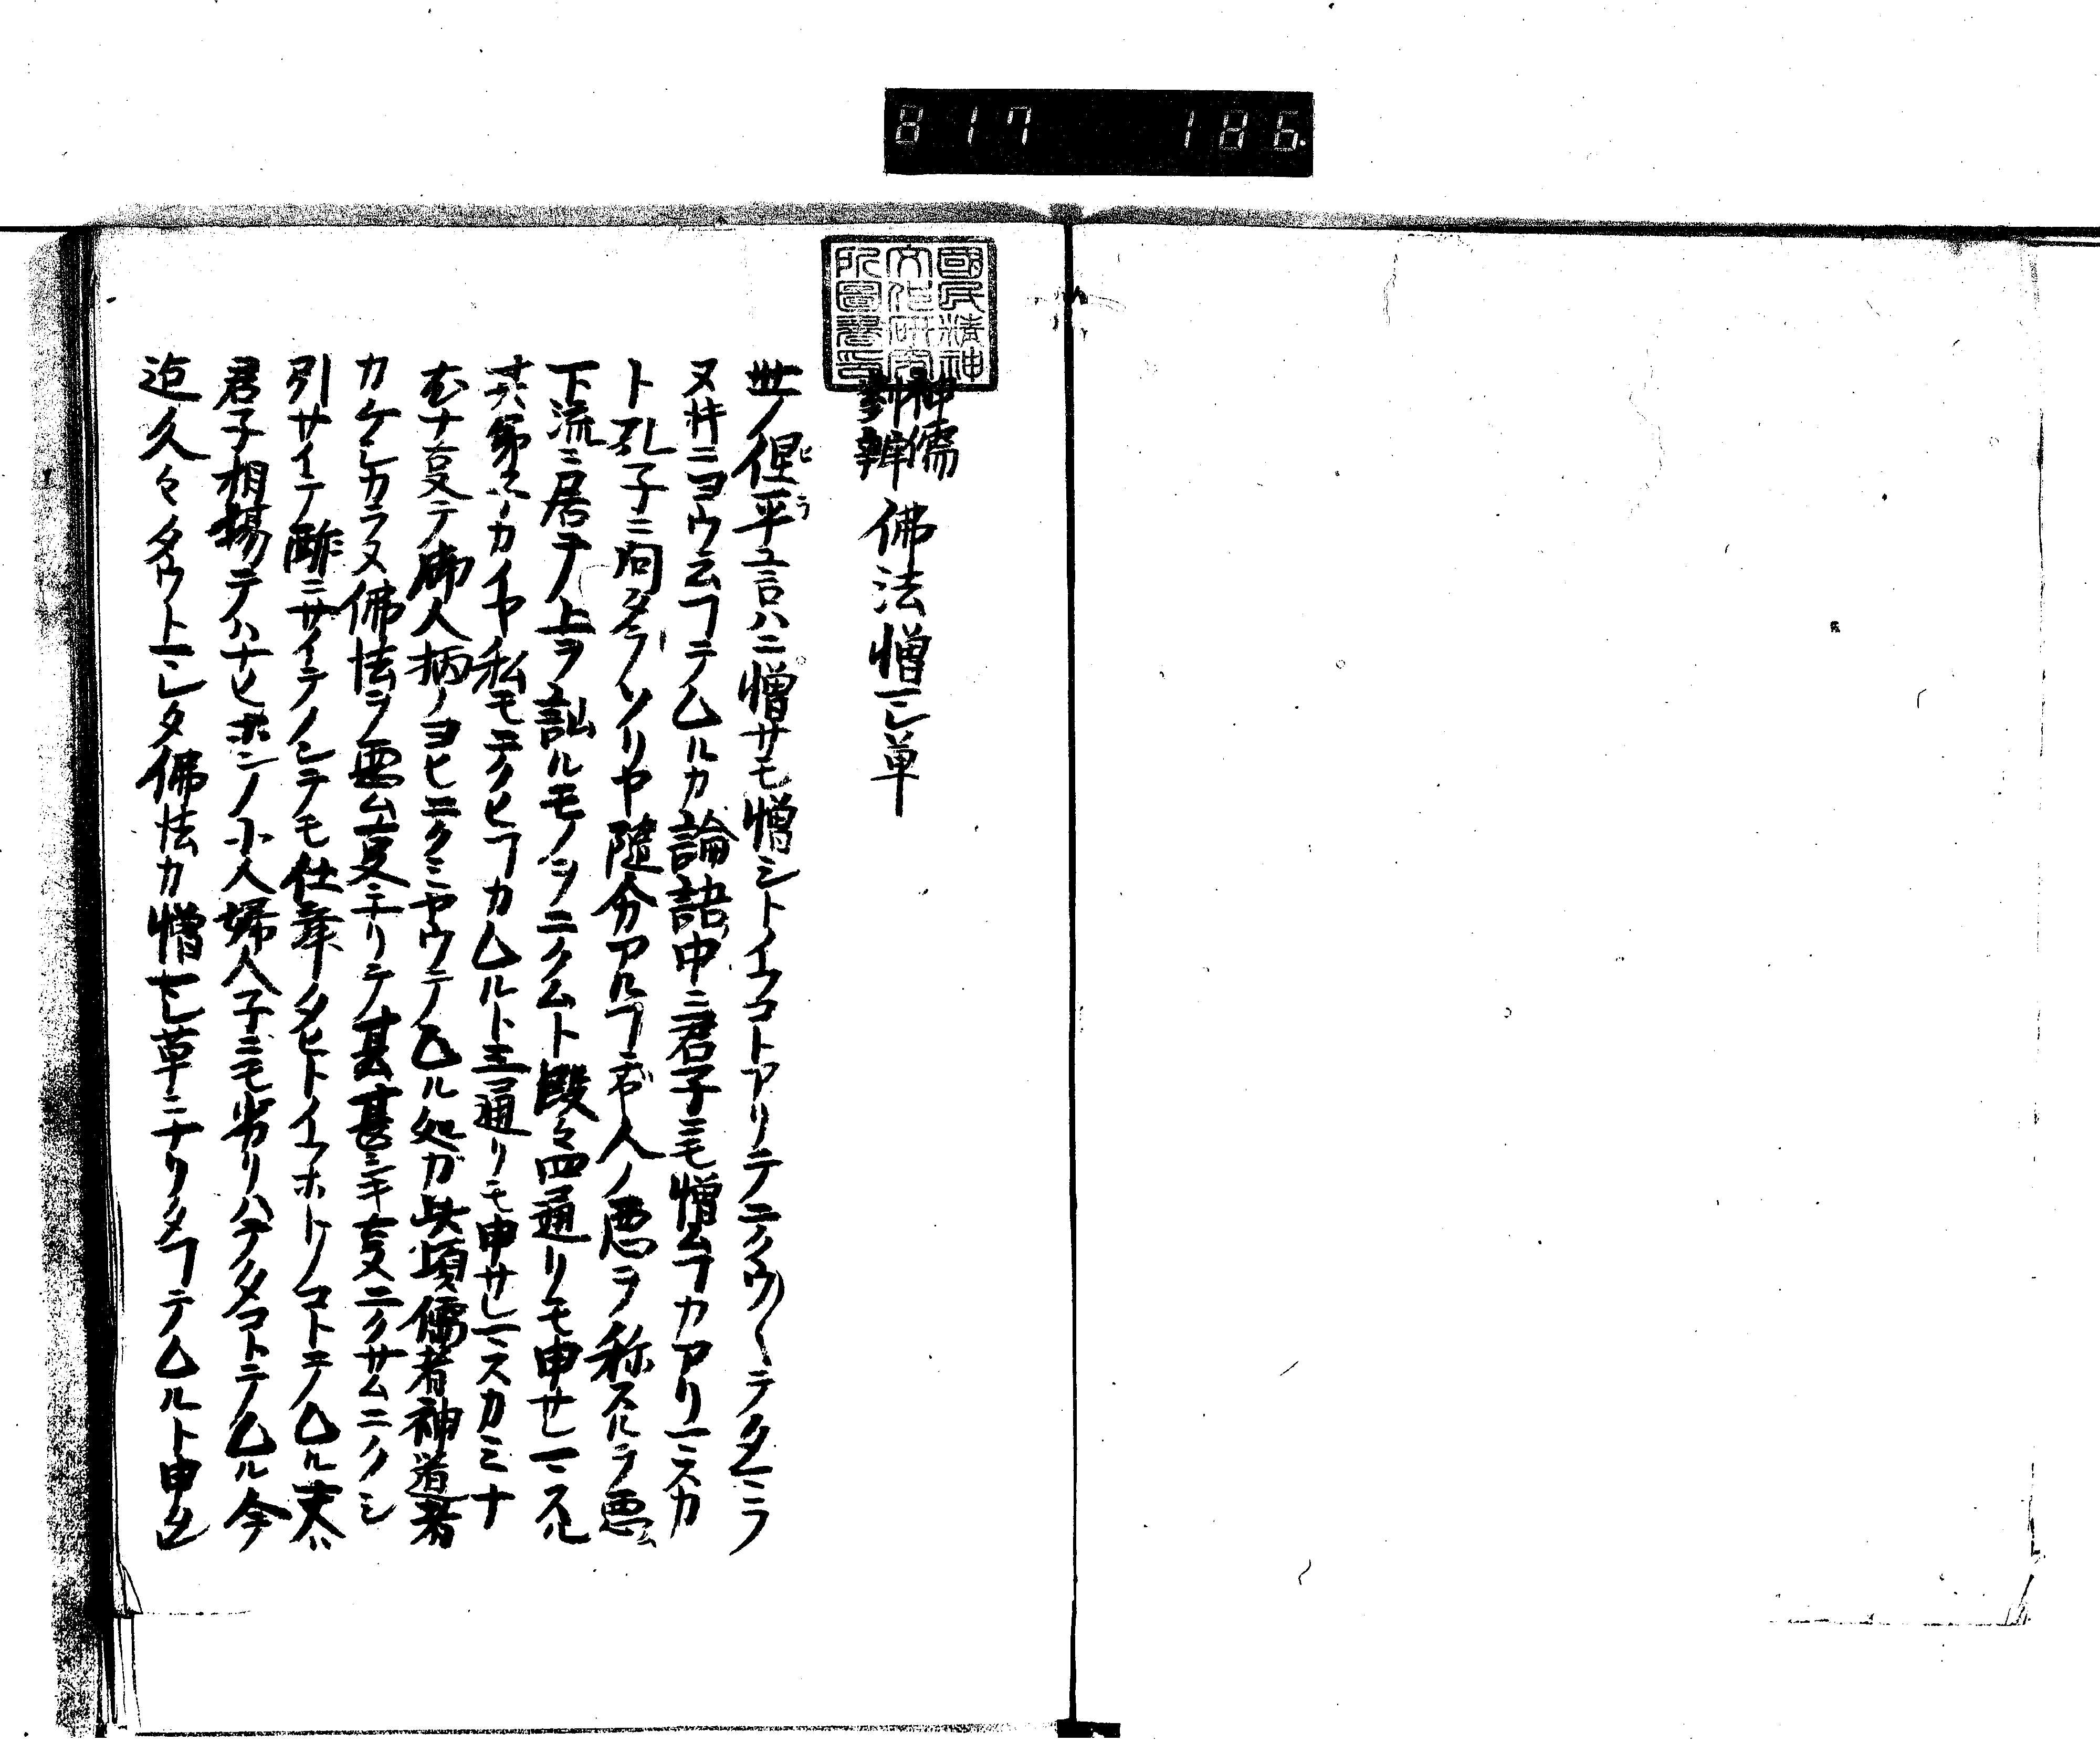 817 186.
國民精神
文化研究
所圖書印
神儒
弁辨 佛法憎ミ草
世ノ俚平ユ言ハニ憎サモ憎シトイフコトアリテニクウ〱テタマラ
ヌ廾ニヨウ云フテ厶ルカ論語中ニ君子ニモ憎ムヿカアリマスカ
ト孔子ニ問タラソリヤ隨分アルヿ人ノ悪ヲ称スルヲ悪ム
下流ニ居テノ上ヲ訕ルモノヲニクムト段々四通リモ申サレマス
其弟子カイヤ私モニクヒヿカ厶ルト三通リモ申サレマスカミナ
ナ夏テ御人柄ノヨヒニクミヤウテ厶ル処ガ此頃儒者神道者
カケシカラヌ佛法ヲ悪ム夏ニナリテ甚甚シキ夏ニクサムニクシ
引サイテ酢ニサイテノンテモ仕舞タヒトイフホトノコトテ厶ル夫ハ
君子相揚テハナヒホンノ小人婦人子ニモ劣リハテタコトテ厶ル今
迠久々タウトマレタ佛法カ憎マレ草ニナリタヿテ厶ルト申タレ